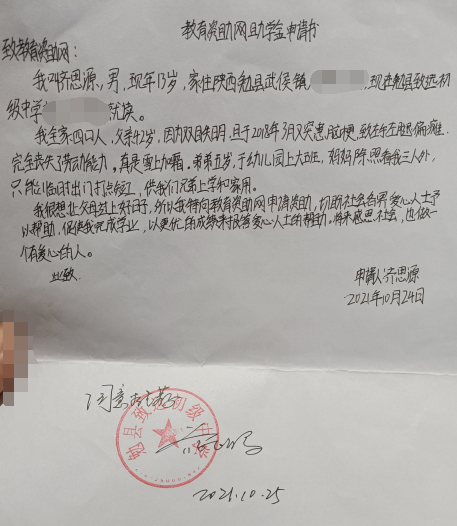 教育资助网助学金申请书
致教育资助网：
我叫齐思源，男，现年13岁，家住陕西勉县武侯镇，现在勉县致远初
级中学就读。
我全家四口人，父亲42岁，因为双目失明，且于2018年3月又突患脑梗，致在左腿偏瘫，
完全丧失了劳动能力。真是雪上加霜，弟弟五岁，于幼儿园上大班，妈妈除照看我三人外，
只能临时出门打点零工，供我们兄弟上学和家用。
我很想让父母过上好日子，所以我特向教育资助网申请资助，切盼社会各界爱心人士予
以帮助，促使我完成学业，以更优的成绩来报答爱心人士的帮助。将来感恩社会，也做一
个有爱心的人。
此致
申请人：齐思源
2021年10月24日
同意
勉县致远初级中学
2021.10.25